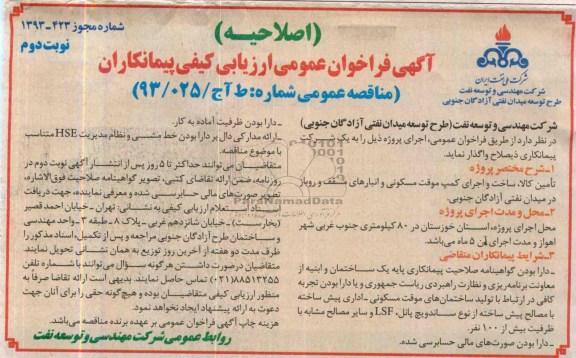 (اصلاحیه)
شماره مجوز ۴۲۳-۱۳۹۳
نوبت دوم
آگهی فراخوان عمومی ارزیابی کیفی پیمانکاران
(مناقصه عمومی شماره: ط آج/۹۳/۰۲۵)
شرکت ملی نفت ایران
شرکت مهندسی و توسعه نفت
طرح توسعه میدان نفتی آزادگان جنوبی
شرکت مهندسی و توسعه نفت (طرح توسعه میدان نفتی آزادگان جنوبی)
در نظر دارد از طریق فراخوان عمومی، اجرای پروژه ذیل را به یک شرکت
پیمانکاری ذیصلاح واگذار نماید.
۱-شرح مختصر پروژه
تأمین کالا، ساخت و اجرای کمپ موقت مسکونی و انبارهای مسقف و روباز
در میدان نفتی آزادگان جنوبی.
۲-محل و مدت اجرای پروژه
محل اجرای پروژه، استان خوزستان در ۸۰ کیلومتری جنوب غربی شهر
اهواز و مدت اجرای آن ۵ ماه می‌باشد.
۳-شرایط پیمانکاران متقاضی
ـ دارا بودن گواهینامه صلاحیت پیمانکاری پایه یک ساختمان و ابنیه از
معاونت برنامه‌ریزی و نظارت راهبردی ریاست جمهوری و یا دارا بودن تجربه
کافی در ارتباط با تولید ساختمان‌های موقت مسکونی ـ اداری پیش ساخته
با مصالح پیش ساخته از نوع ساندویچ پانل، LSF و سایر مصالح مشابه با
ظرفیت بیش از ۱۰۰ نفر.
ـ دارا بودن صورت‌های مالی حسابرسی شده.
ـ دارا بودن ظرفیت آماده به کار.
ـ ارائه مدارکی دال بر دارا بودن خط مشی و نظام مدیریت HSE متناسب
با موضوع مناقصه.
متقاضیان می‌توانند حداکثر تا ۵ روز پس از انتشار آگهی نوبت دوم در
روزنامه، ضمن ارائه تقاضای کتبی، تصویر گواهینامه صلاحیت فوق‌الاشاره،
تصویر صورت‌های مالی حسابرسی شده و معرفی نماینده، جهت دریافت
اسناد استعلام ارزیابی کیفی به نشانی: تهران ـ خیابان احمد قصیر
(بخارست) ـ خیابان شانزدهم غربی ـ پلاک ۸ ـ طبقه ۳ ـ واحد مهندسی
و ساختمان طرح آزادگان جنوبی مراجعه و پس از تکمیل، اسناد مذکور را
ظرف مدت دو هفته از آخرین روز توزیع به همان نشانی تحویل نمایند.
متقاضیان درصورت داشتن هرگونه سؤال می‌توانند با شماره تلفن
۸۸۵۱۳۲۵۵(۰۲۱) تماس حاصل نمایند. بدیهی است ارائه تقاضا صرفاً به
منظور ارزیابی کیفی متقاضیان بوده و هیچ‌گونه حقی را برای آنان جهت
دعوت به ارائه پیشنهاد ایجاد نخواهد نمود.
هزینه چاپ آگهی فراخوان عمومی بر عهده برنده مناقصه می‌باشد.
روابط عمومی شرکت مهندسی و توسعه نفت
ParsNamadData